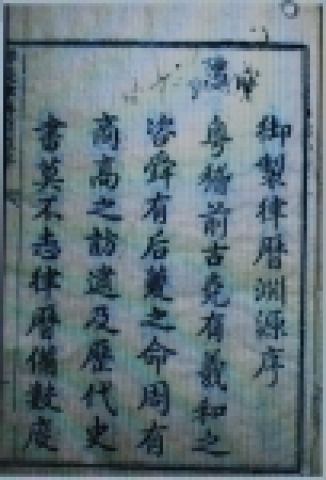 御製律曆淵源序
粤稽前古堯有羲和之
咨舜有后夔之命周有
商高之訪逮及歷代史
書莫不志律曆備數度